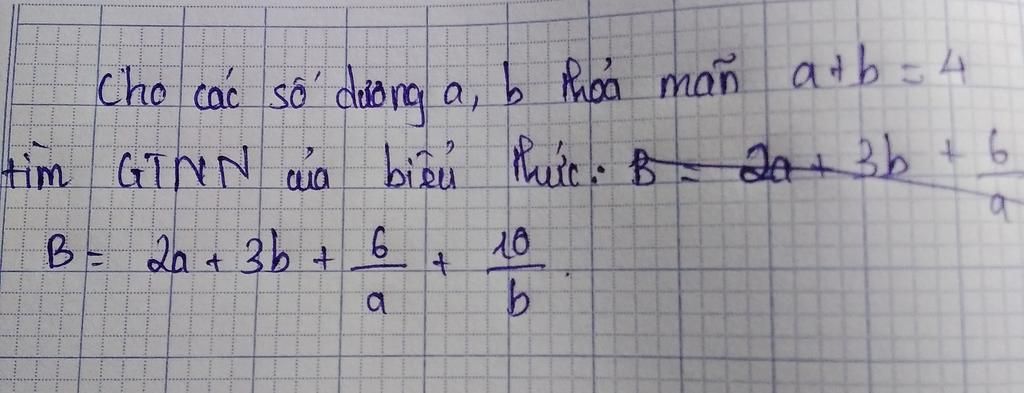 Cho các số dương a, b thoả mãn a+b=4
tìm GTNN của biểu thức: B = 2a + 3b + 6/a
B = 2a + 3b + 6/a + 10/b.